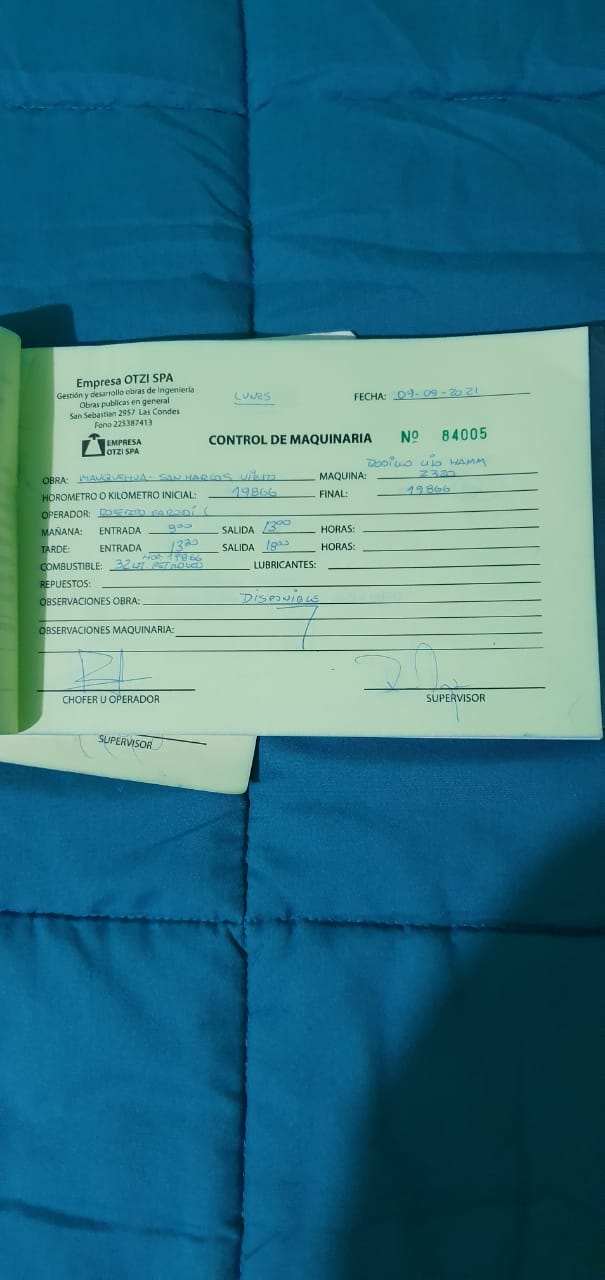 Empresa OTZI SPA
Gestión y desarrollo obras de Ingeniería
Obras publicas en general
San Sebastian 2957 Las Condes
Fono 225387413
EMPRESA
OTZI SPA
LUNES
FECHA: 09-08-2021
CONTROL DE MAQUINARIA Nº 84005
OBRA: MANQUEHUA - SAN MARCOS VIEJO MAQUINA: RODILLO HAMM
2320
HOROMETRO O KILOMETRO INICIAL: 19866 FINAL: 19866
OPERADOR: PARODÍ
MAÑANA: ENTRADA 9:00 SALIDA 13:00 HORAS:
TARDE: ENTRADA 13:30 SALIDA 18:00 HORAS:
HOR: 19866
COMBUSTIBLE: 32 LT. PETROLEO LUBRICANTES:
REPUESTOS:
OBSERVACIONES OBRA: DISPONIBLE
OBSERVACIONES MAQUINARIA:
CHOFER U OPERADOR SUPERVISOR
SUPERVISOR